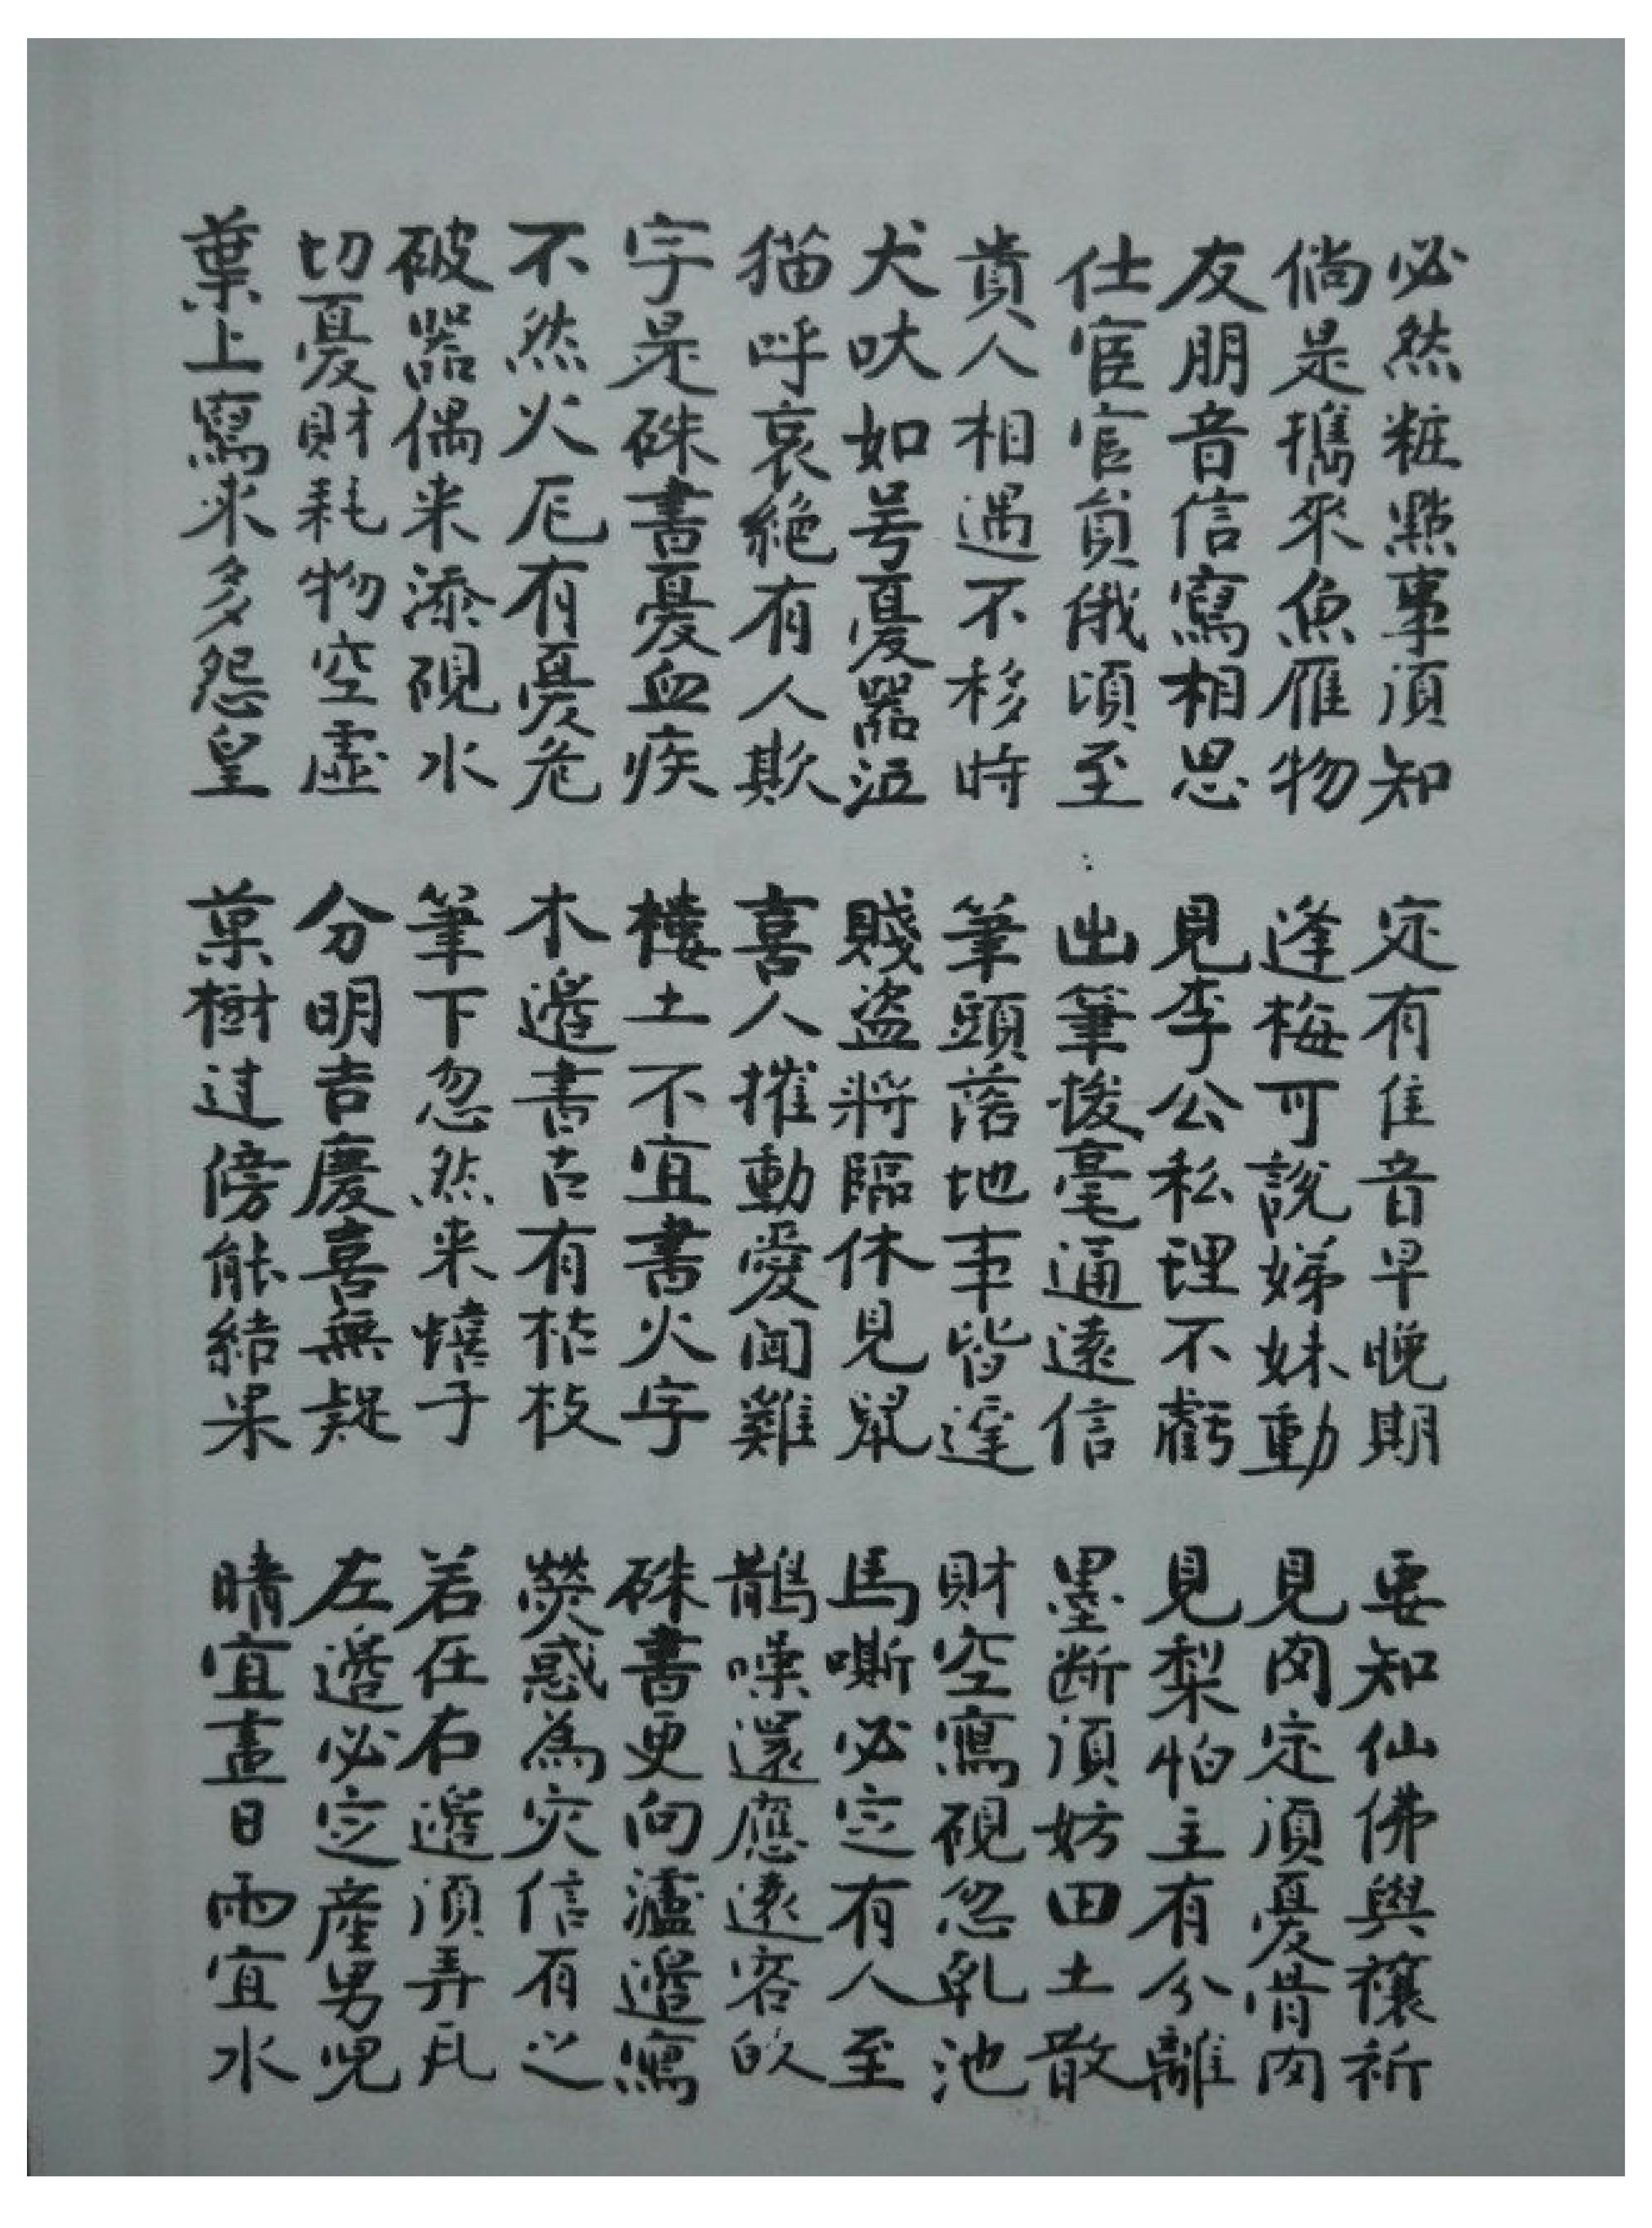 必然粧點事須知
倘是攜來魚雁物
友朋音信寫相思
仕宦官員俄頃至
貴人相遇不移時
犬吠如号憂器泣
猫呼哀絶有人欺
字是硃書憂血疾
不然火厄有憂危
破器偶来添硯水
切憂財耗物空虛
葉上寫來多怨皇
定有佳音早晚期
逢梅可說娣妹動
見李公私理不虧
出筆拔毫通遠信
筆頭落地事皆遲
賤盜將臨休見鼠
喜人摧動愛闻雞
樓土不宜書火字
木邊書古有枯枝
筆下忽然来憘子
分明吉慶喜無疑
菓樹过傍能結果
要知仙佛與禳祈
見肉定須憂骨肉
見梨怕主有分離
墨断須妨田土散
財空寫硯忽乳池
馬嘶必定有人至
鵲噪還應遠客的
硃書更向瀘邊寫
熒惑為灾信有之
若在右邊須弄瓦
左邊必定産男児
晴宜畫日雨宜水